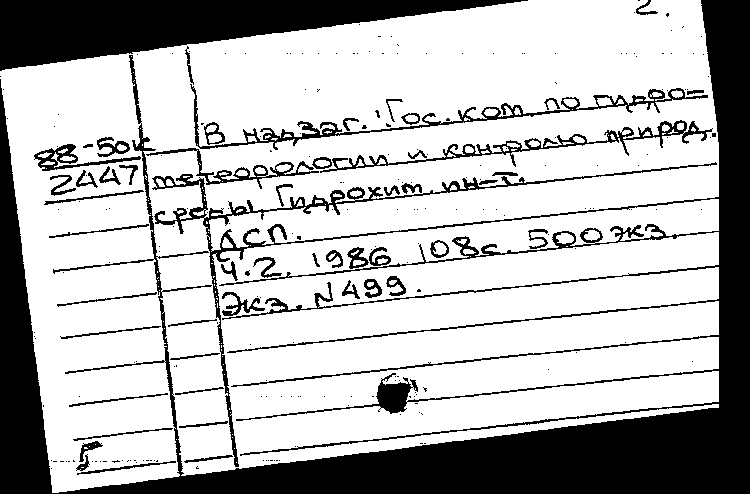 2.
88-50к
2447
В надзаг.: Гос. ком. по гидро=
метеорологии и контролю природ.
среды, Гидрохим. ин-т.
ДСП.
Ч.2. 1986. 108с. 500экз.
Экз. N499.
5